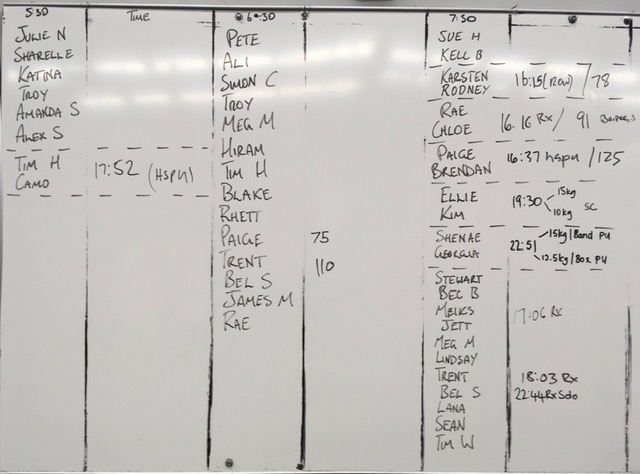 5:30 TIME
JULIE N
SHARELLE
KATINA
TROY
AMANDA S
ALEX S
TIM H
CAMO
17:52 (HSPU)
6:30
PETE
ALI
SIMON C
TROY
MEG M
HIRAM
TIM H
BLAKE
RHETT
PAIGE 75
TRENT 110
BEL S
JAMES M
RAE
7:30
SUE H
KELL B
KARSTEN
RODNEY
16:15 (ROW) / 78
RAE
CHLOE
16.16 RX / 91
PAIGE
BRENDAN
16:37 hspu / 125
ELLIE
KIM
19:30
15kg
10kg
SC
SHENAE
GEORGIA
22:51
15kg / Band PU
12.5kg / Box PU
STEWART
BEC B
17:06 RX
JETT
MEG M
LINDSAY
TRENT 18:03 RX
BEL S 22:44
LANA
SEAN
TIM W